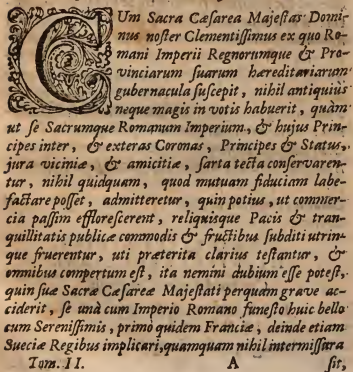 CUm Sacra Cæsarea Majestas Domi-
nus noster Clementissimus ex quo Ro-
mani Imperii Regnorumque & Pro-
vinciarum suarum hæreditariarum
gubernacula suscepit, nihil antiquius
neque magis in votis habuerit, quàm
ut se Sacrumque Romanum Imperium, & hujus Prin-
cipes inter, & exteras Coronas, Principes & Status,
jura viciniæ, & amicitiæ, sarta tecta conservaren-
tur, nihil quidquam, quod mutuam fiduciam labe-
factare posset, admitteretur, quin potius, ut commer-
cia passim efflorescerent, reliquisque Pacis & tran-
quillitatis publicæ commodis & fructibus subditi utrin-
que fruerentur, uti præterita clarius testantur, &
omnibus compertum est, ita nemini dubium esse potest,
quin suæ Sacræ Cæsareæ Majestati perquàm grave ac-
ciderit, se unà cum Imperio Romano funesto huic bello
cum Serenissimis, primò quidem Franciæ, deinde etiam
Sueciæ Regibus implicari, quamquam nihil intermissura
Tom. II. A sit,